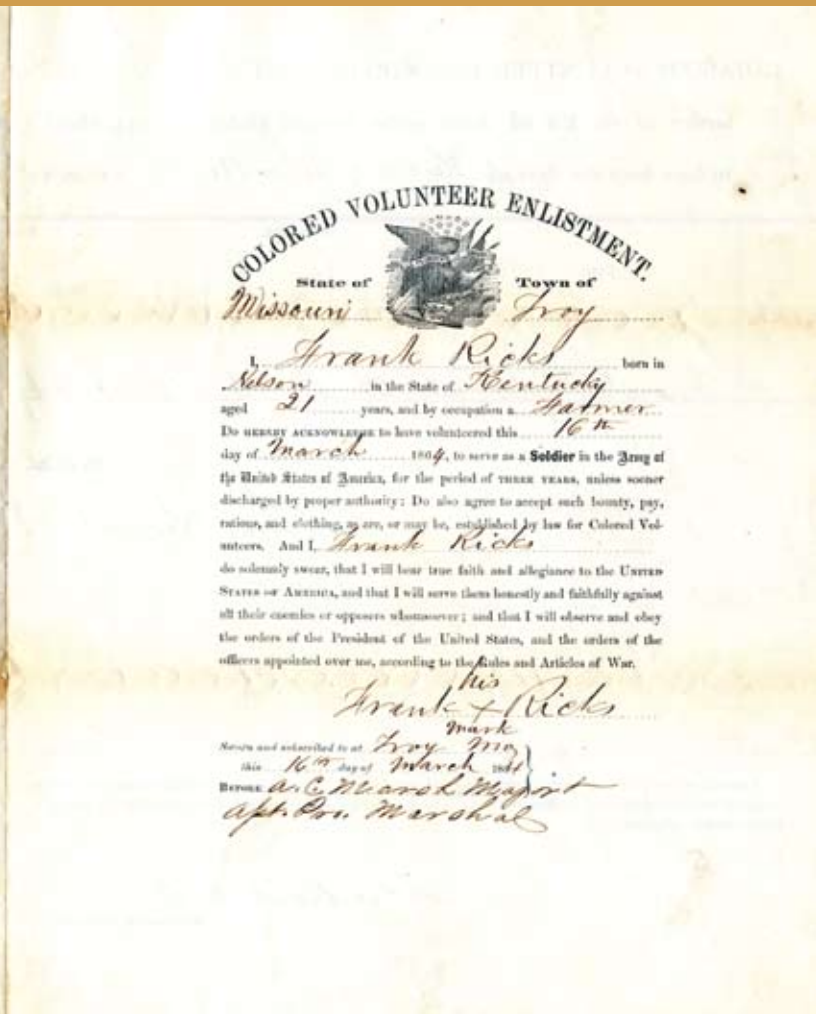 COLORED VOLUNTEER ENLISTMENT.
State of Town of
Missouri Troy
I, Frank Ricks born in
Nelson in the State of Kentucky
aged 21 years, and by occupation a Farmer
Do HEREBY ACKNOWLEDGE to have volunteered this 16th
day of March 1864, to serve as a Soldier in the Army of
the United States of America, for the period of THREE YEARS, unless sooner
discharged by proper authority; Do also agree to accept such bounty, pay,
rations, and clothing, as are, or may be, established by law for Colored Vol-
unteers. And I, Frank Ricks
do solemnly swear, that I will bear true faith and allegiance to the UNITED
STATES OF AMERICA, and that I will serve them honestly and faithfully against
all their enemies or opposers whomsoever; and that I will observe and obey
the orders of the President of the United States, and the orders of the
officers appointed over me, according to the Rules and Articles of War.
his
Frank + Ricks
mark
Sworn and subscribed to at Troy Mo
this 16th day of March 1864
BEFORE A. C. Marsh
Pro. Marshal